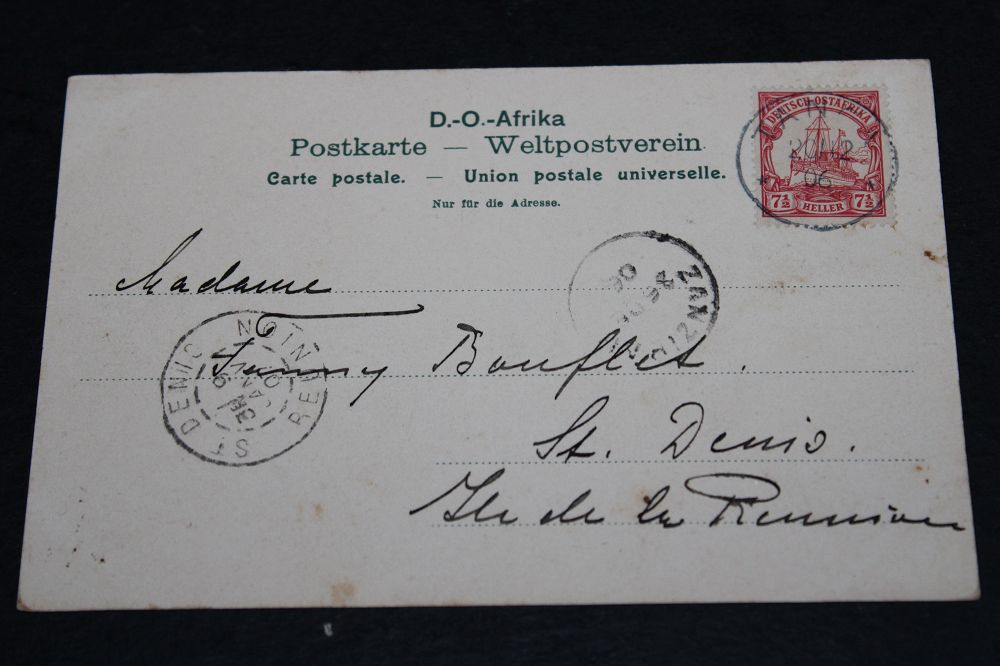 D.-O.-Afrika
Postkarte — Weltpostverein
Carte postale. — Union postale universelle.
Nur für die Adresse.
DEUTSCH-OSTAFRIKA
20/12
06
7½ HELLER 7½
ZAN
Madame
Fanny Bouflet.
ST DENIS REUNION
St. Denis.
Ile de la Reunion